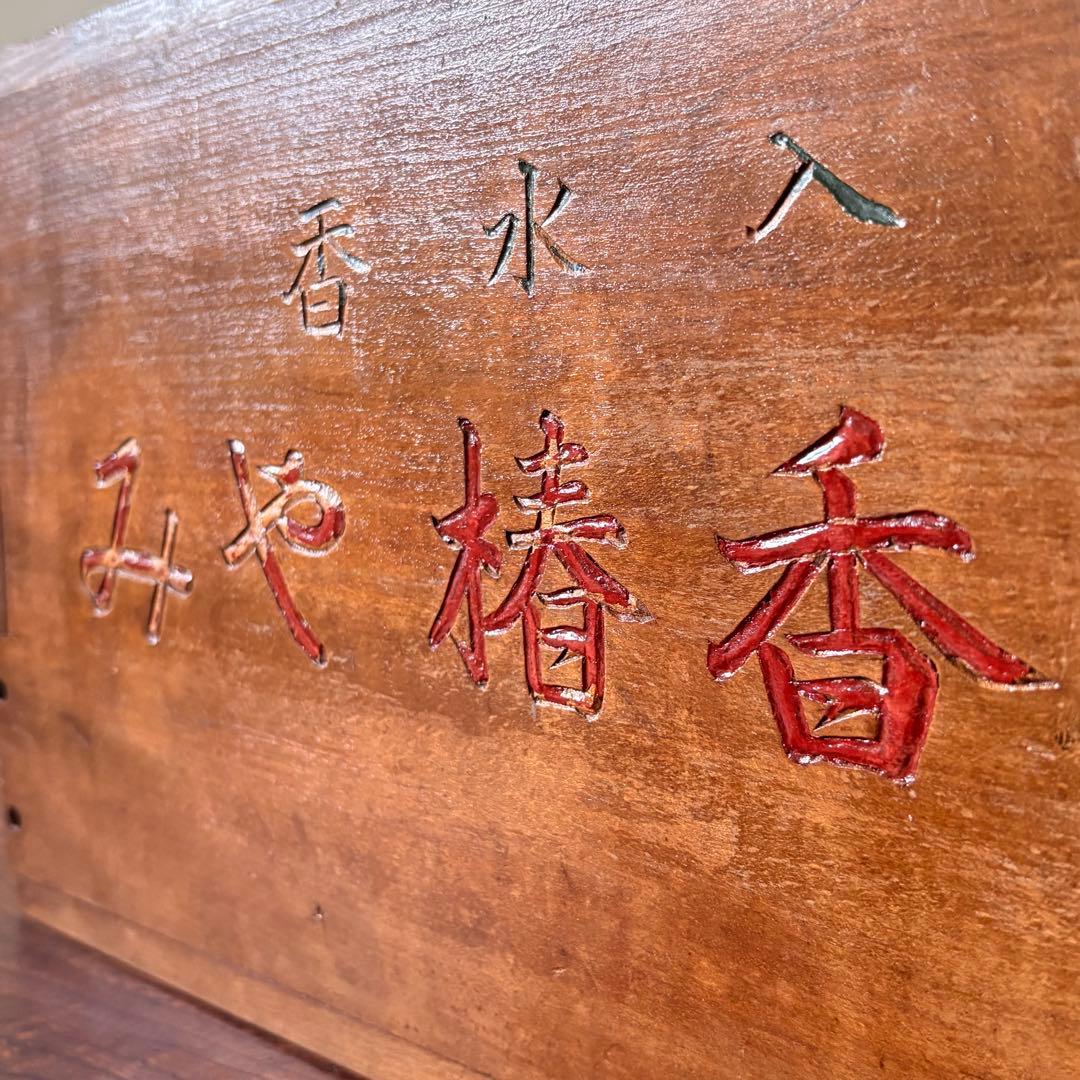 香水入
みや椿香